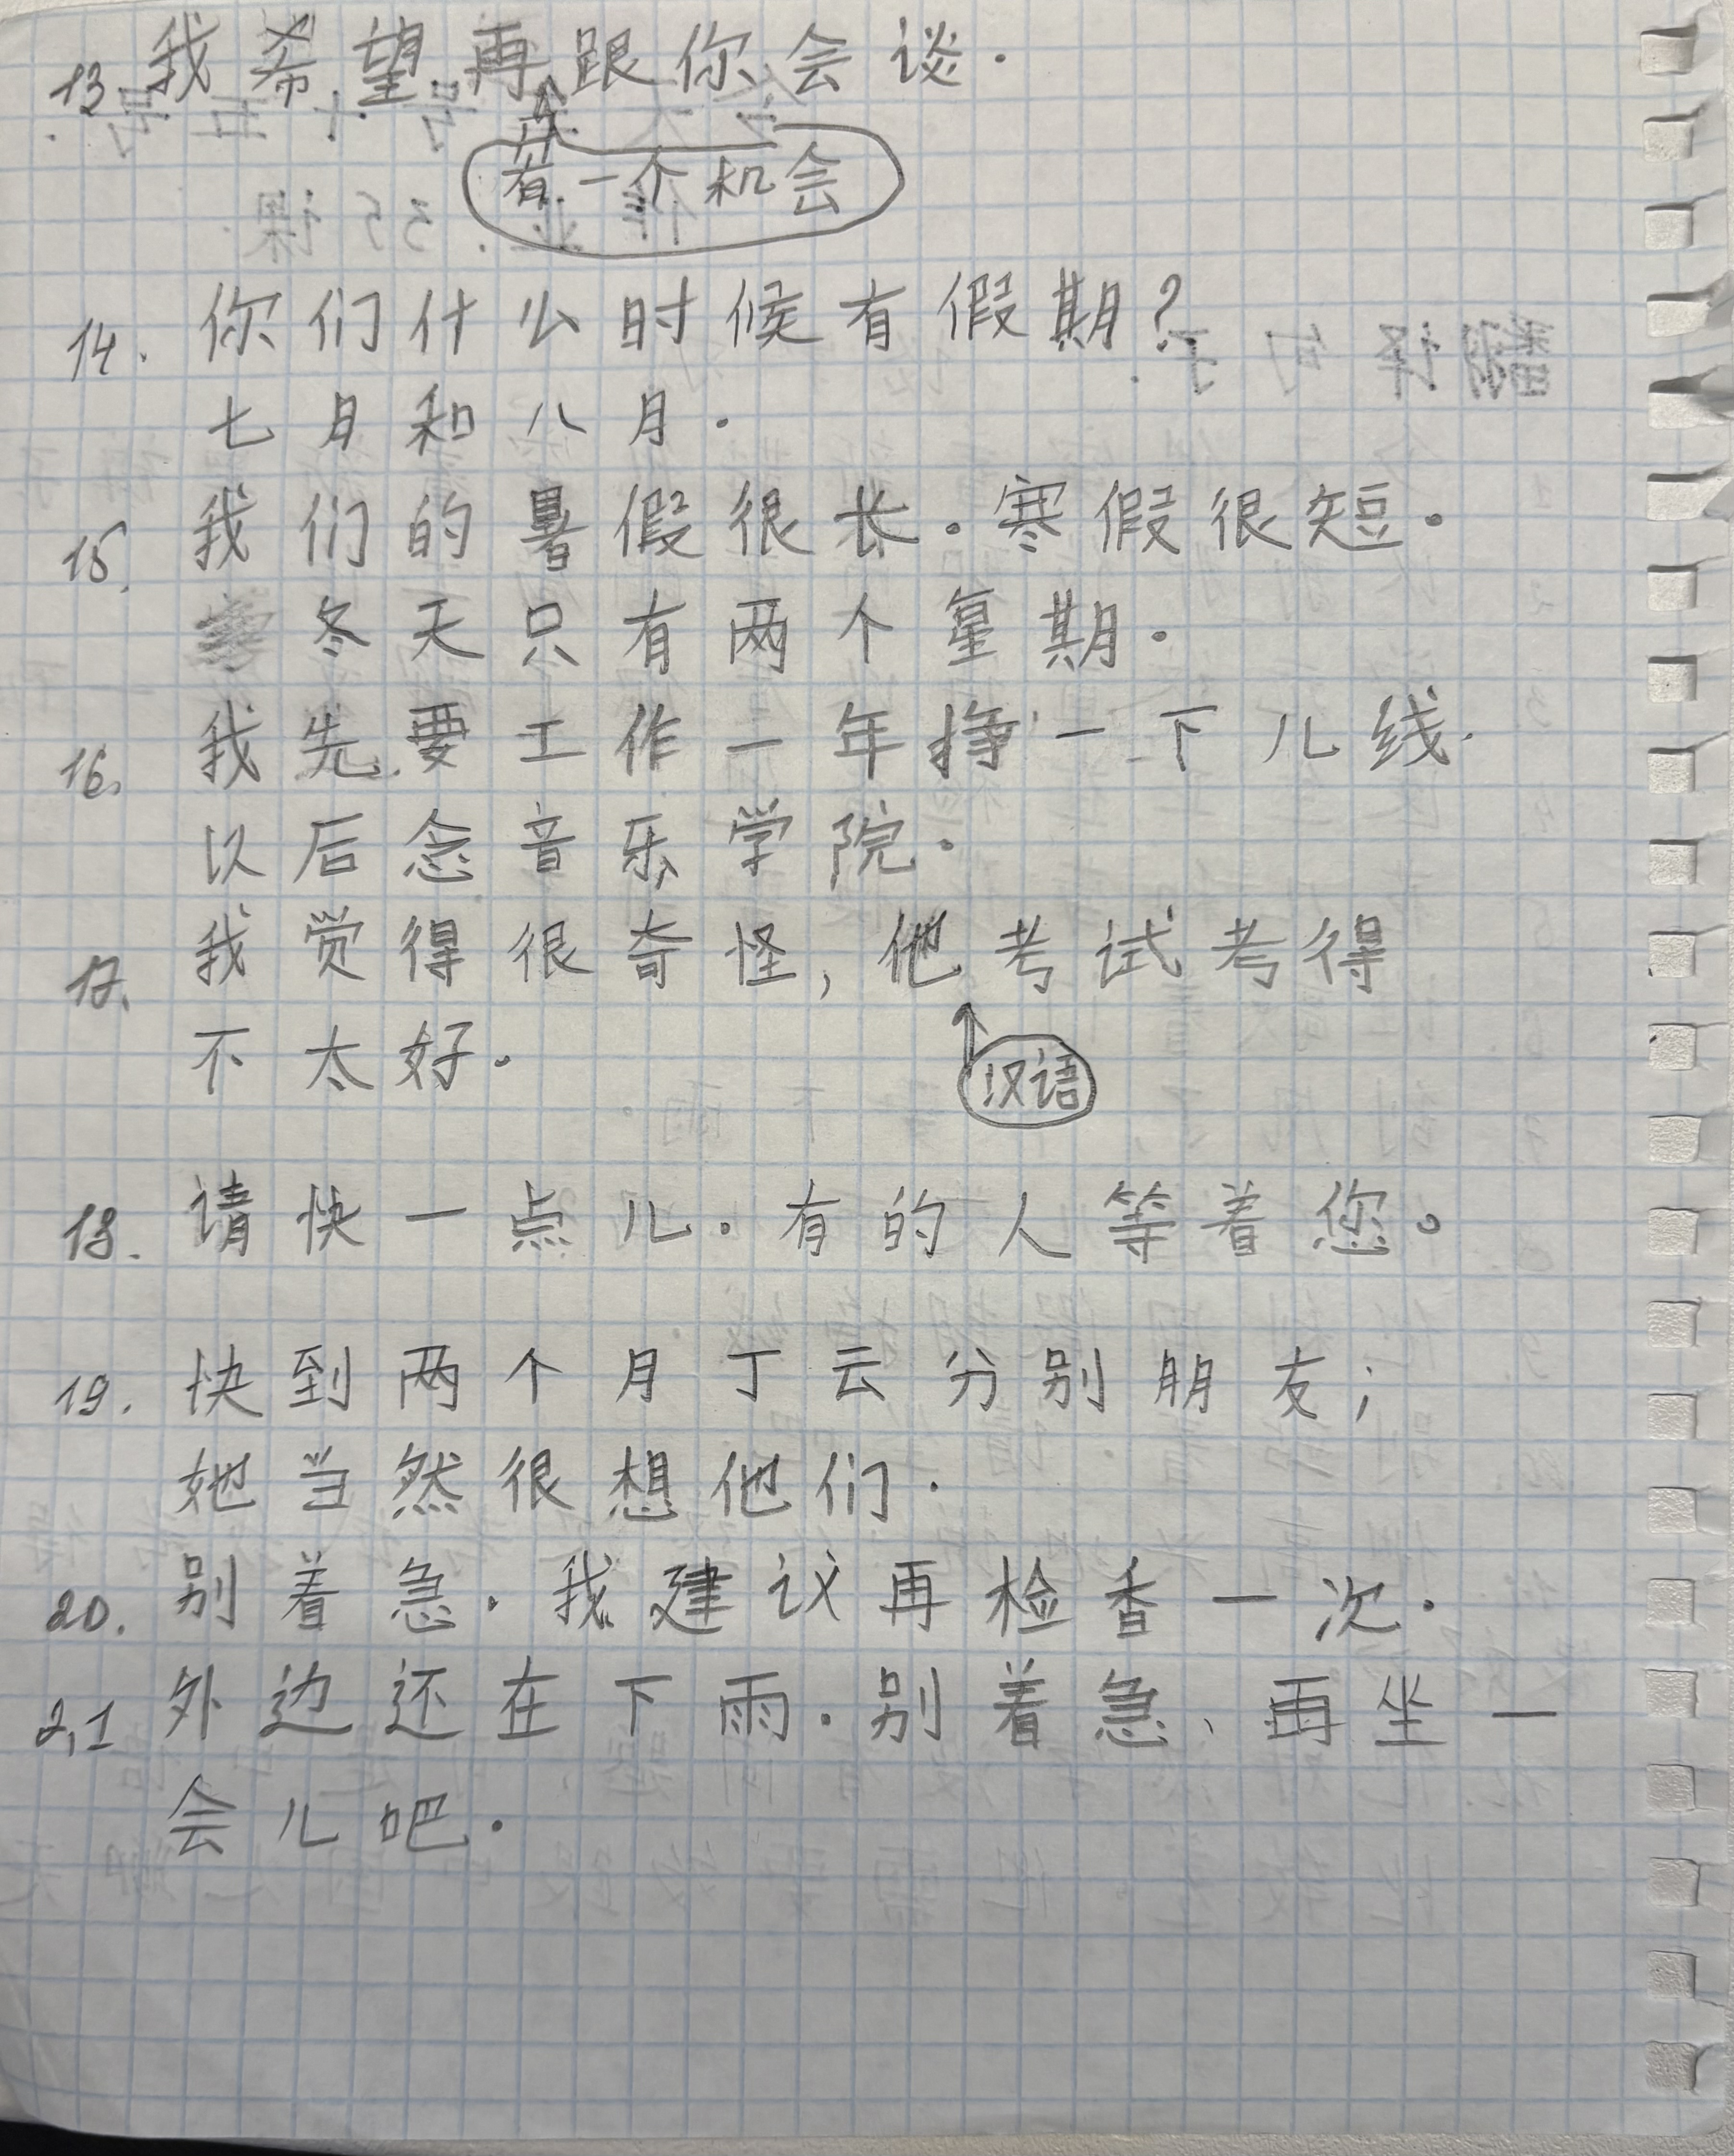 13. 我希望再跟你会谈.
有一个机会
14. 你们什么时候有假期?
七月和八月.
15. 我们的暑假很长.寒假很短.
冬天只有两个星期.
16. 我先要工作一年挣一下儿线.
以后念音乐学院.
17. 我觉得很奇怪,他考试考得
汉语
不太好.
18. 请快一点儿.有的人等着您。
19. 快到两个月丁云分别朋友;
她当然很想他们.
20. 别着急.我建议再检香一次.
21 外边还在下雨.别着急、再坐一
会儿吧.